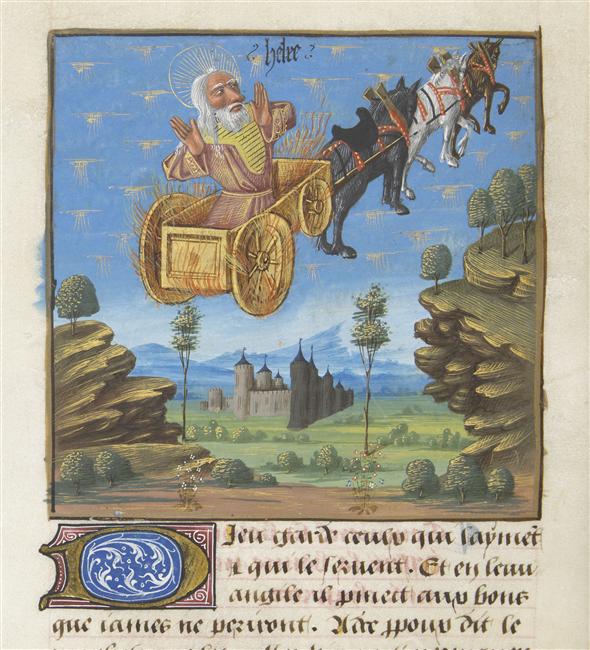 helye
Dieu garde ceulx qui laymēt
et qui le seruent. Et en leuu
angile il pmect aux bons
que iames ne periront. A ce dit le